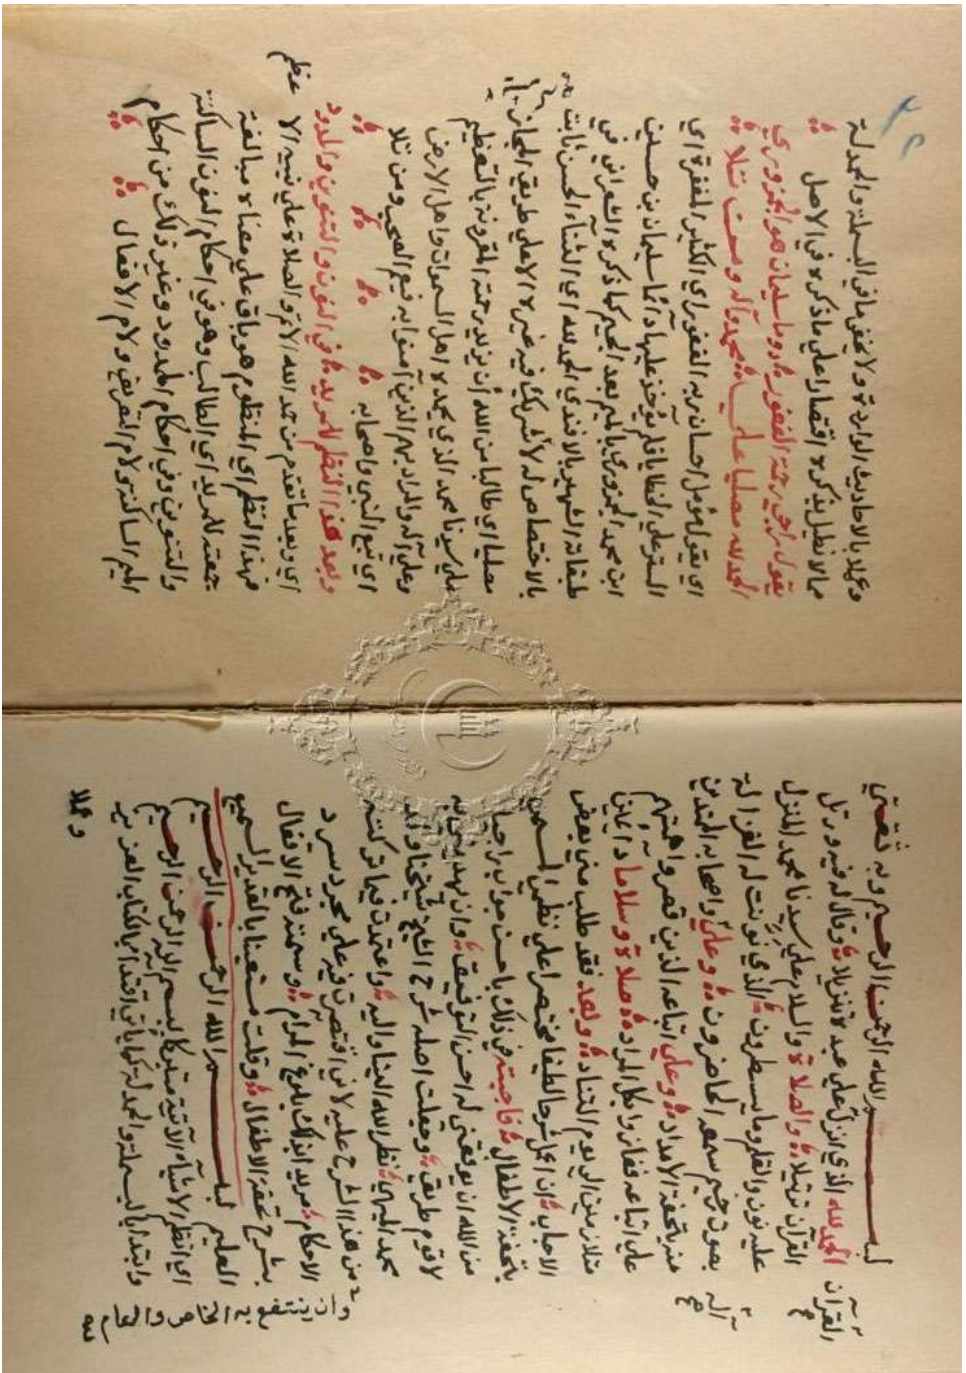 بسم الله الرحمن الرحيم وبه ثقتي
الحمد لله الذي انزل علي عبده تنزيلا وقال له فيه ورتل
القرآن ترتيلا والصلاة والسلام علي سيدنا محمد المنزل
عليه نون والقلم وما يسطرون الذي نونت له الغزالة
بصوت رخيم سمعه الحاضرون وعلي اصحابه المهتدين
منه بتحفة الامداد وعلي اتباعه الذين قصروا همتهم
علي اتباعه ففازوا بكل المراد صلاة وسلاما دائمين
متلازمين الي يوم التناد وبعد فقد طلب مني بعض
الاحباب ان اعمل شرحا لطيفا مختصرا علي نظمي المسمي
بتحفة الاطفال فاجبته في ذلك باحسن جواب راجيا
من الله ان يوفقني له احسن التوفيق وان يهديني به
لاقوم طريق وجعلت اصله شرح الشيخ شيخنا
محمد الميهي نظر الله الينا واليه واعتمدت فيما تركته
من هذا الشرح عليه لاني اقتصرت فيه علي مجرد سرد
الاحكام مريدا بذلك بلوغ المرام وسميته فتح الاقفال
بشرح تحفة الاطفال وقلت مستعينا بالقدير السميع
العليم بسم الله الرحمن الرحيم
اي انظم الاشياء الآتية متبركا ببسم الله الرحمن الرحيم
وابتدا بالبسملة والحمدلة كما ياتي اقتدا بالكتاب العزيز
وعملا
القرآن
صح
آله
صح
وان ينتفع به الخاص والعام صح
وعملا بالاحاديث الواردة ولا يخفي ما في البسملة والحمدلة
مما لا نطيل بذكره اقتصارا علي ما ذكره في الاصل
يقول راجي رحمة الغفور دوما سليمان هو الجمزوري
الحمد لله مصليا علي محمد وآله ومن تلا
اي يقول مؤمل احسان ربه الغفور اي الكثير المغفرة اي
الستر علي الخطايا فلم يؤخذ عليها دائما سليمان بن حسين
ابن محمد الجمزوري بالميم بعد الجيم كما ذكره الشعراني في
طبقاته الشهير بالافندي الحمد لله اي الثناء الحسن ثابت
بالاختصاص له لا شريك فيه غيره الا علي طريق المجاز
مصليا اي طالبا من الله ان يزيد رحمته المقرونة بالتعظيم
علي سيدنا محمد الذي يحمده اهل السموات واهل الارض
وعلي آله والمراد بهم الذين آمنوا به فيعم الصحب ومن تلا
اي تبع النبي واصحابه
وبعد هذا النظم للمريد في النون والتنوين والمدود
اي وبعد ما تقدم من حمد الله الاتم والصلاة علي نبيه الاعظم
فهذا النظم اي المنظوم هو باق علي معناه مبالغة
جمعته للمريد اي الطالب وهو في احكام النون الساكنة
والتنوين وفي احكام المدود وغير ذلك من احكام
الميم الساكنة ولام التعريف ولام الافعال